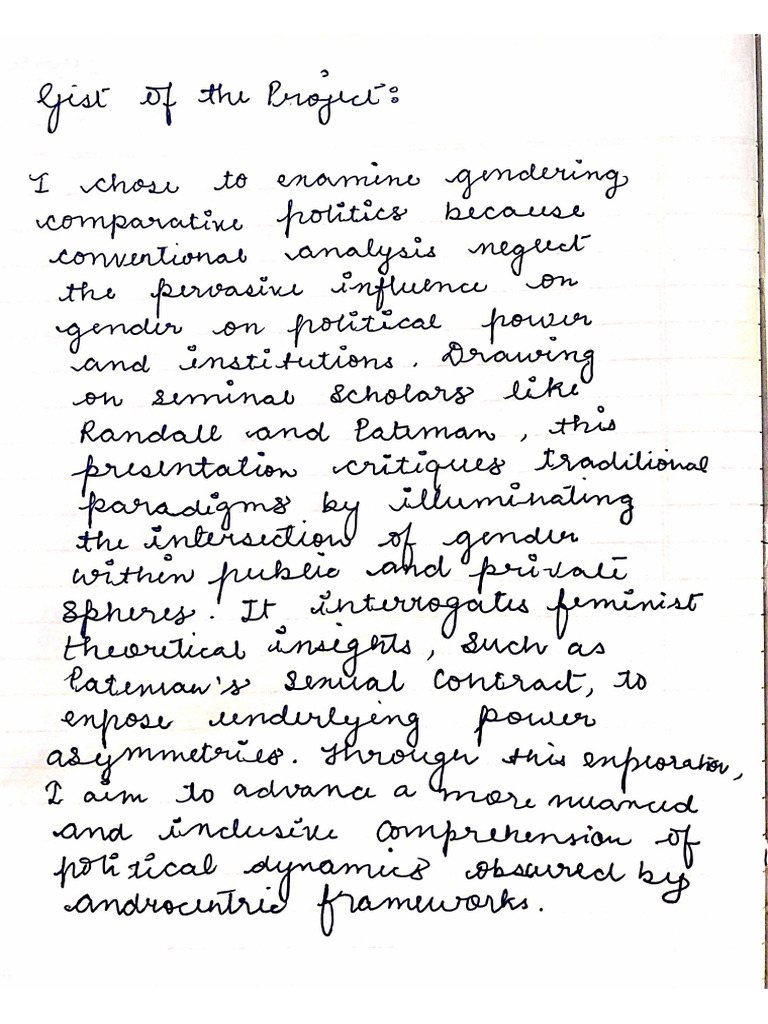 Gist of the Project:
I chose to examine gendering
comparative politics because
conventional analysis neglect
the pervasive influence on
gender on political power
and institutions. Drawing
on seminal scholars like
Randall and Pateman, this
presentation critiques traditional
paradigms by illuminating
the intersection of gender
within public and private
spheres. It interrogates feminist
theoretical insights, such as
Pateman's sexual contract, to
expose underlying power
asymmetries. Through this exploration,
I aim to advance a more nuanced
and inclusive comprehension of
political dynamics obscured by
androcentric frameworks.